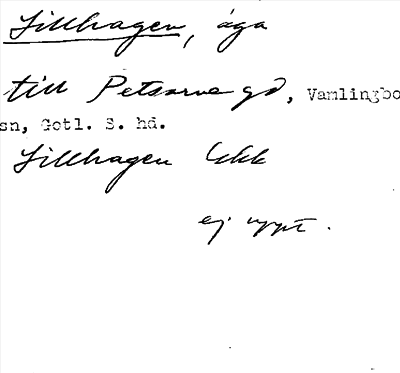 Lillhagen, äga
till Petsarve gd, Vamlingbo
sn, Gotl. S. hd.
Lillhagen Ekk
ej uppt.